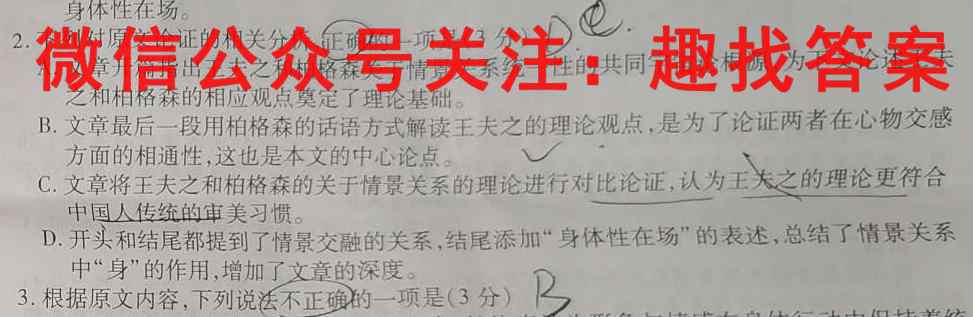 身体性在场。
2. 原文论证的相关分析,正确的一项是(3分) D.
微信公众号关注：趣找答案
之和柏格森的相应观点奠定了理论基础。
B. 文章最后一段用柏格森的话语方式解读王夫之的理论观点,是为了论证两者在心物交感
方面的相通性,这也是本文的中心论点。
C. 文章将王夫之和柏格森的关于情景关系的理论进行对比论证,认为王夫之的理论更符合
中国人传统的审美习惯。
D. 开头和结尾都提到了情景交融的关系,结尾添加“身体性在场”的表述,总结了情景关系
中“身”的作用,增加了文章的深度。
3. 根据原文内容,下列说法不正确的一项是(3分) B